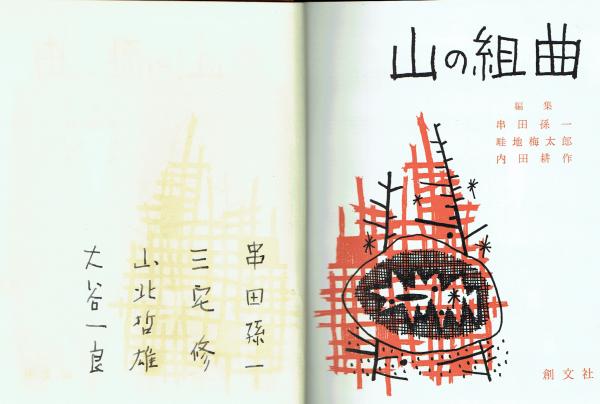 山の組曲
編集
串田孫一
畦地梅太郎
内田耕作
創文社
串田孫一
三宅修
山北哲雄
大谷一良